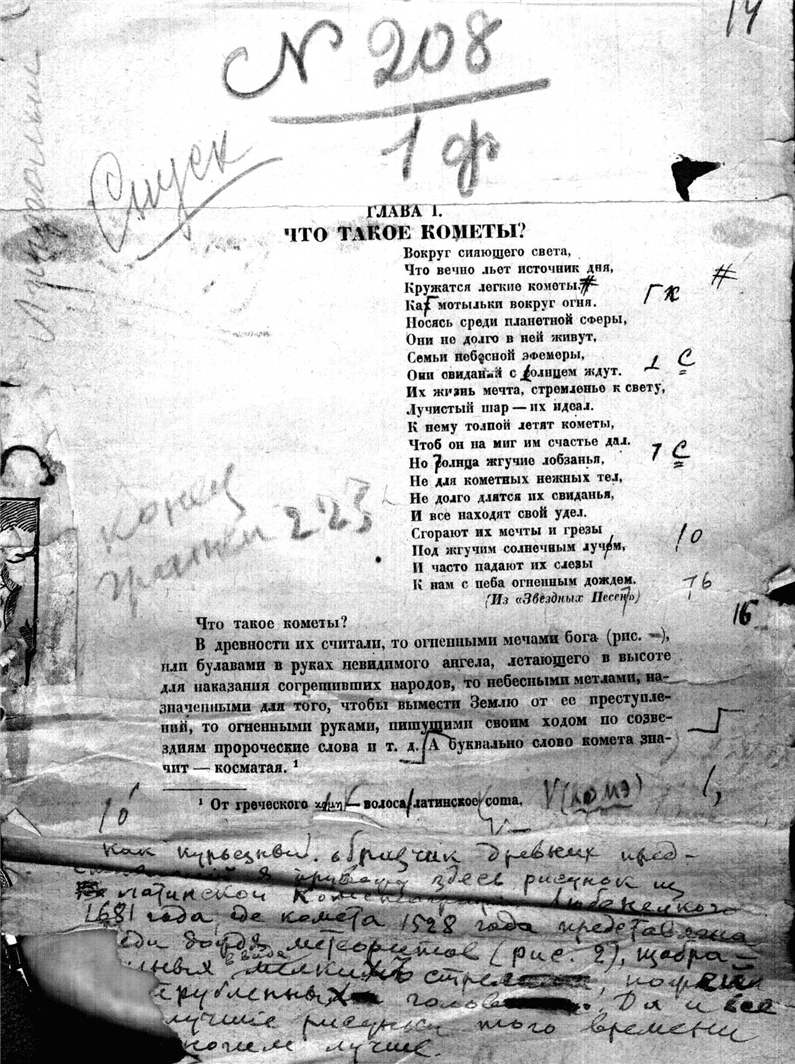 14
N 208
1 ф
Спуск
ГЛАВА I.
ЧТО ТАКОЕ КОМЕТЫ?
Вокруг сияющего света,
Что вечно льет источник дня,
Кружатся легкие кометы # #
Как мотыльки вокруг огня. Г К
Носясь среди планетной сферы,
Они не долго в ней живут,
Семьи небесной эфемеры,
Они свиданий с солнцем ждут. С
Их жизнь мечта, стремленье к свету,
Лучистый шар — их идеал.
К нему толпой летят кометы,
Чтоб он на миг им счастье дал.
Но солнца жгучие лобзанья, С
Не для кометных нежных тел,
Не долго длятся их свиданья,
И все находят свой удел.
Сгорают их мечты и грезы
Под жгучим солнечным лучом, о
И часто падают их слезы
К нам с неба огненным дождем.
(Из «Звездных Песен»)
конец
гранки 223
16
Что такое кометы?
В древности их считали, то огненными мечами бога (рис. —),
или булавами в руках невидимого ангела, летающего в высоте
для наказания согрешивших народов, то небесными метлами, на-
значенными для того, чтобы вымести Землю от ее преступле-
ний, то огненными руками, пишущими своим ходом по созве-
здиям пророческие слова и т. д. А буквально слово комета зна-
чит — косматая. ¹
¹ От греческого κόμη — волоса латинское coma. V (комэ)
Как курьезный образчик древних пред-
здесь рисунок из
латинской Любенецкого
1681 года, где комета 1528 года представлена
дождя метеоритов (рис. 2), изобра-
в виде мелких стрел
отрубленных голов Да и все
лучшие рисунки того времени
лучше.